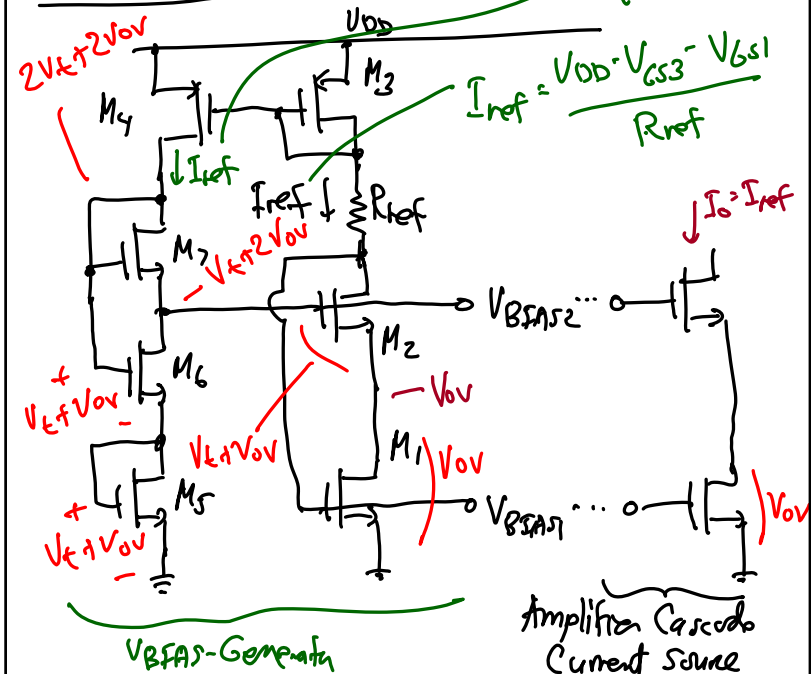 VDD
2Vt+2Vov
M4
M3
Iref = VDD-VGS3-VGS1
Rref
↓Iref
Iref ↓
Rref
Io=Iref
M7
Vt+2Vov
VBIAS2 ...
M2
M6
+
Vt+Vov
-
Vov
Vt+Vov
M1
Vov
M5
VBIAS1 ...
Vov
+
Vt+Vov
-
VBIAS-Generator
Amplifier Cascode
Current Source